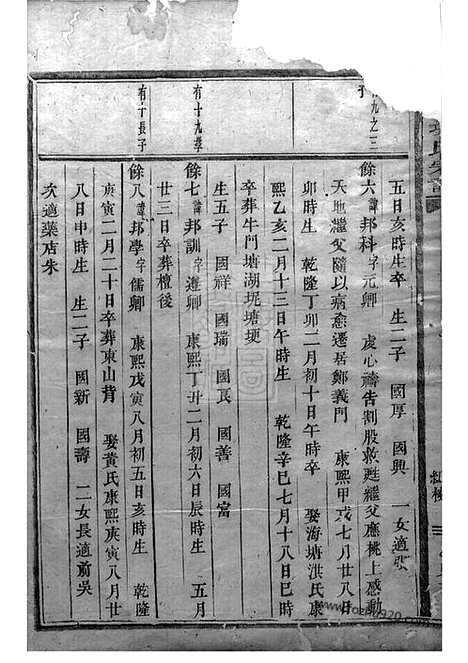 五日亥時生卒 生二子 國厚 國興 一女適
餘六諱邦科字元卿 虔心禱告割股救甦繼父應桃上感動
天地繼父隨以病愈遷居鄭義門 康熙甲戌七月廿八日
卯時生 乾隆丁卯二月初十日午時卒 娶海塘洪氏康
熙乙亥二月十三日午時生 乾隆辛巳七月十八日巳時
卒葬牛門塘湖坭塘埂
生五子 國祥 國瑞 國良 國善 國富
有十九學
餘七諱邦訓字遵卿 康熙丁丑二月初六日辰時生 五月
廿三日卒葬檀後
有丁長子
餘八諱邦學字儒卿 康熙戊寅八月初五日亥時生 乾隆
庚寅二月二十日卒葬東山背 娶黃氏康熙庚寅八月廿
八日申時生 生二子 國新 國壽 二女長適前吳
次適藥店朱